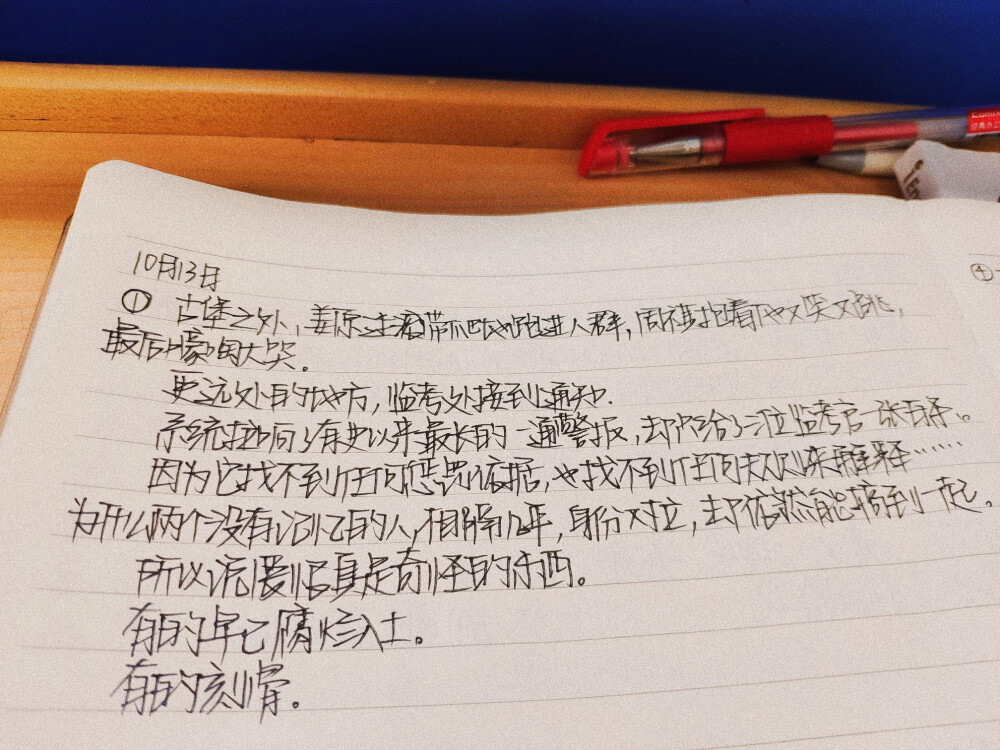 10月13日
① 古堡之外,姜原连滚带爬地跑进人群,周祺抱着他又笑又跳,
最后嚎啕大哭。
更远处的地方,监考处接到通知.
系统拉响了有史以来最长的一通警报,却只给了三位监考官一张白条。
因为它找不到任何惩罚依据,也找不到任何来解释……
为什么两个没有记忆的人,相隔几年,身份对立,却依然能搞到一起。
所以说爱恨真是奇怪的东西。
有的早已腐烂入土。
有的刻骨。
④